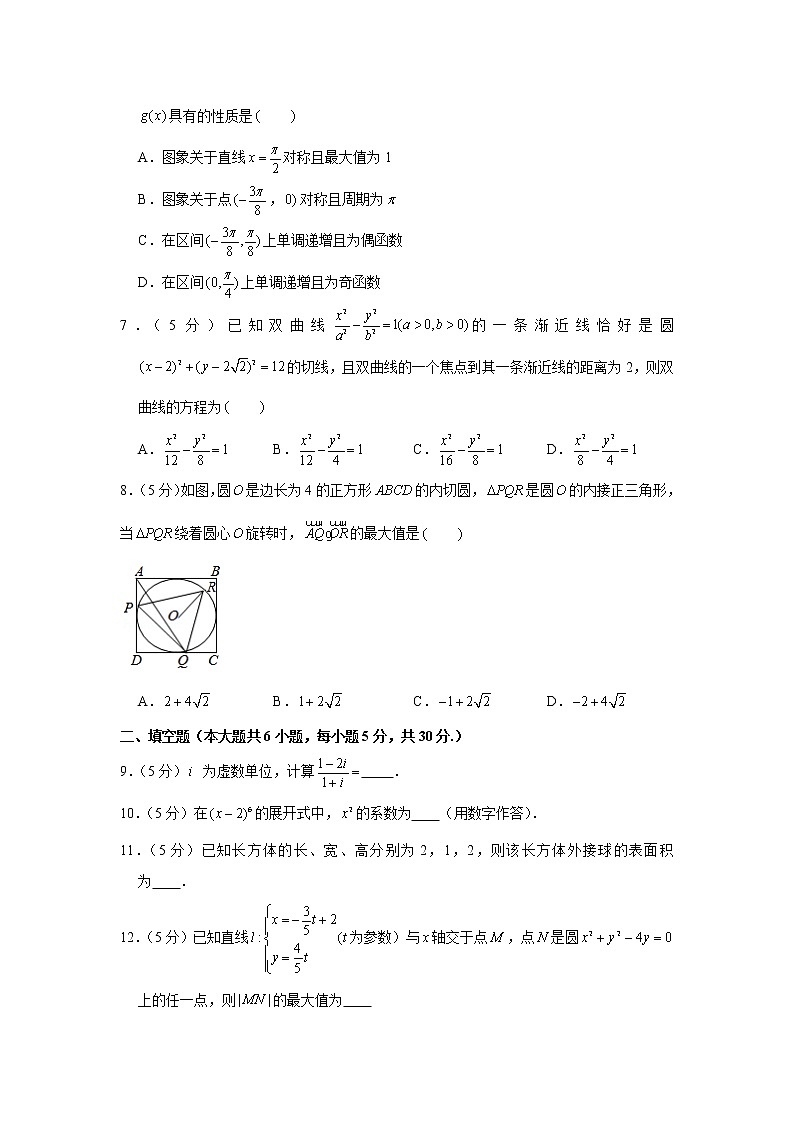 g(x)具有的性质是(  )
A.图象关于直线x=π/2对称且最大值为1
B.图象关于点(-3π/8,0)对称且周期为π
C.在区间(-3π/8,π/8)上单调递增且为偶函数
D.在区间(0,π/4)上单调递增且为奇函数
7.(5分)已知双曲线x²/a²-y²/b²=1(a>0,b>0)的一条渐近线恰好是圆
(x-2)²+(y-2√2)²=12的切线,且双曲线的一个焦点到其一条渐近线的距离为2,则双
曲线的方程为(  )
A.x²/12-y²/8=1 B.x²/12-y²/4=1 C.x²/16-y²/8=1 D.x²/8-y²/4=1
8.(5分)如图,圆O是边长为4的正方形ABCD的内切圆,ΔPQR是圆O的内接正三角形,
当ΔPQR绕着圆心O旋转时,AQgOR的最大值是(  )
A B
R
P
O
D Q C
A.2+4√2 B.1+2√2 C.-1+2√2 D.-2+4√2
二、填空题(本大题共6小题,每小题5分,共30分.)
9.(5分)i 为虚数单位,计算(1-2i)/(1+i)=____.
10.(5分)在(x-2)⁶的展开式中,x²的系数为____(用数字作答).
11.(5分)已知长方体的长、宽、高分别为2,1,2,则该长方体外接球的表面积
为____.
12.(5分)已知直线l:{x=-3/5t+2 y=4/5t (t为参数)与x轴交于点M,点N是圆x²+y²-4y=0
上的任一点,则|MN|的最大值为____